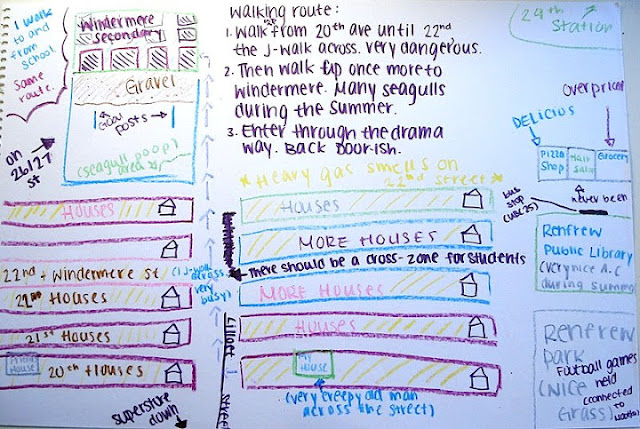 I walk
to and
from
school
same
route.
windermere
secondary
Gravel
Goal
posts
(seagull poop)
area
on
26/27
st
walking route:
1. Walk from 20th ave until 22nd
the J-walk across. very dangerous.
2. Then walk up once more to
windermere. Many seagulls
during the Summer.
3. Enter through the drama
way. Back door-ish.
*Heavy gas smells on
22nd street*
29th
Station
overpriced
DELICIOS
Pizza
Shop
Hair
Salon
Grocery
never been
bus
stop
Renfrew
Public Library
(very nice A.C
during summer
Renfrew
Park
(Nice
Grass)
Football games
held
(connected
to
Houses
Houses
22nd + windermere st
(J-walk
across
very
busy)
22nd Houses
21st Houses
Friends
House
20th Houses
superstore
down
Houses
MORE HOUSES
There should be a cross-zone for students
MORE HOUSES
Houses
My
House
(very creepy old man
across the street)
Lillooet
Street